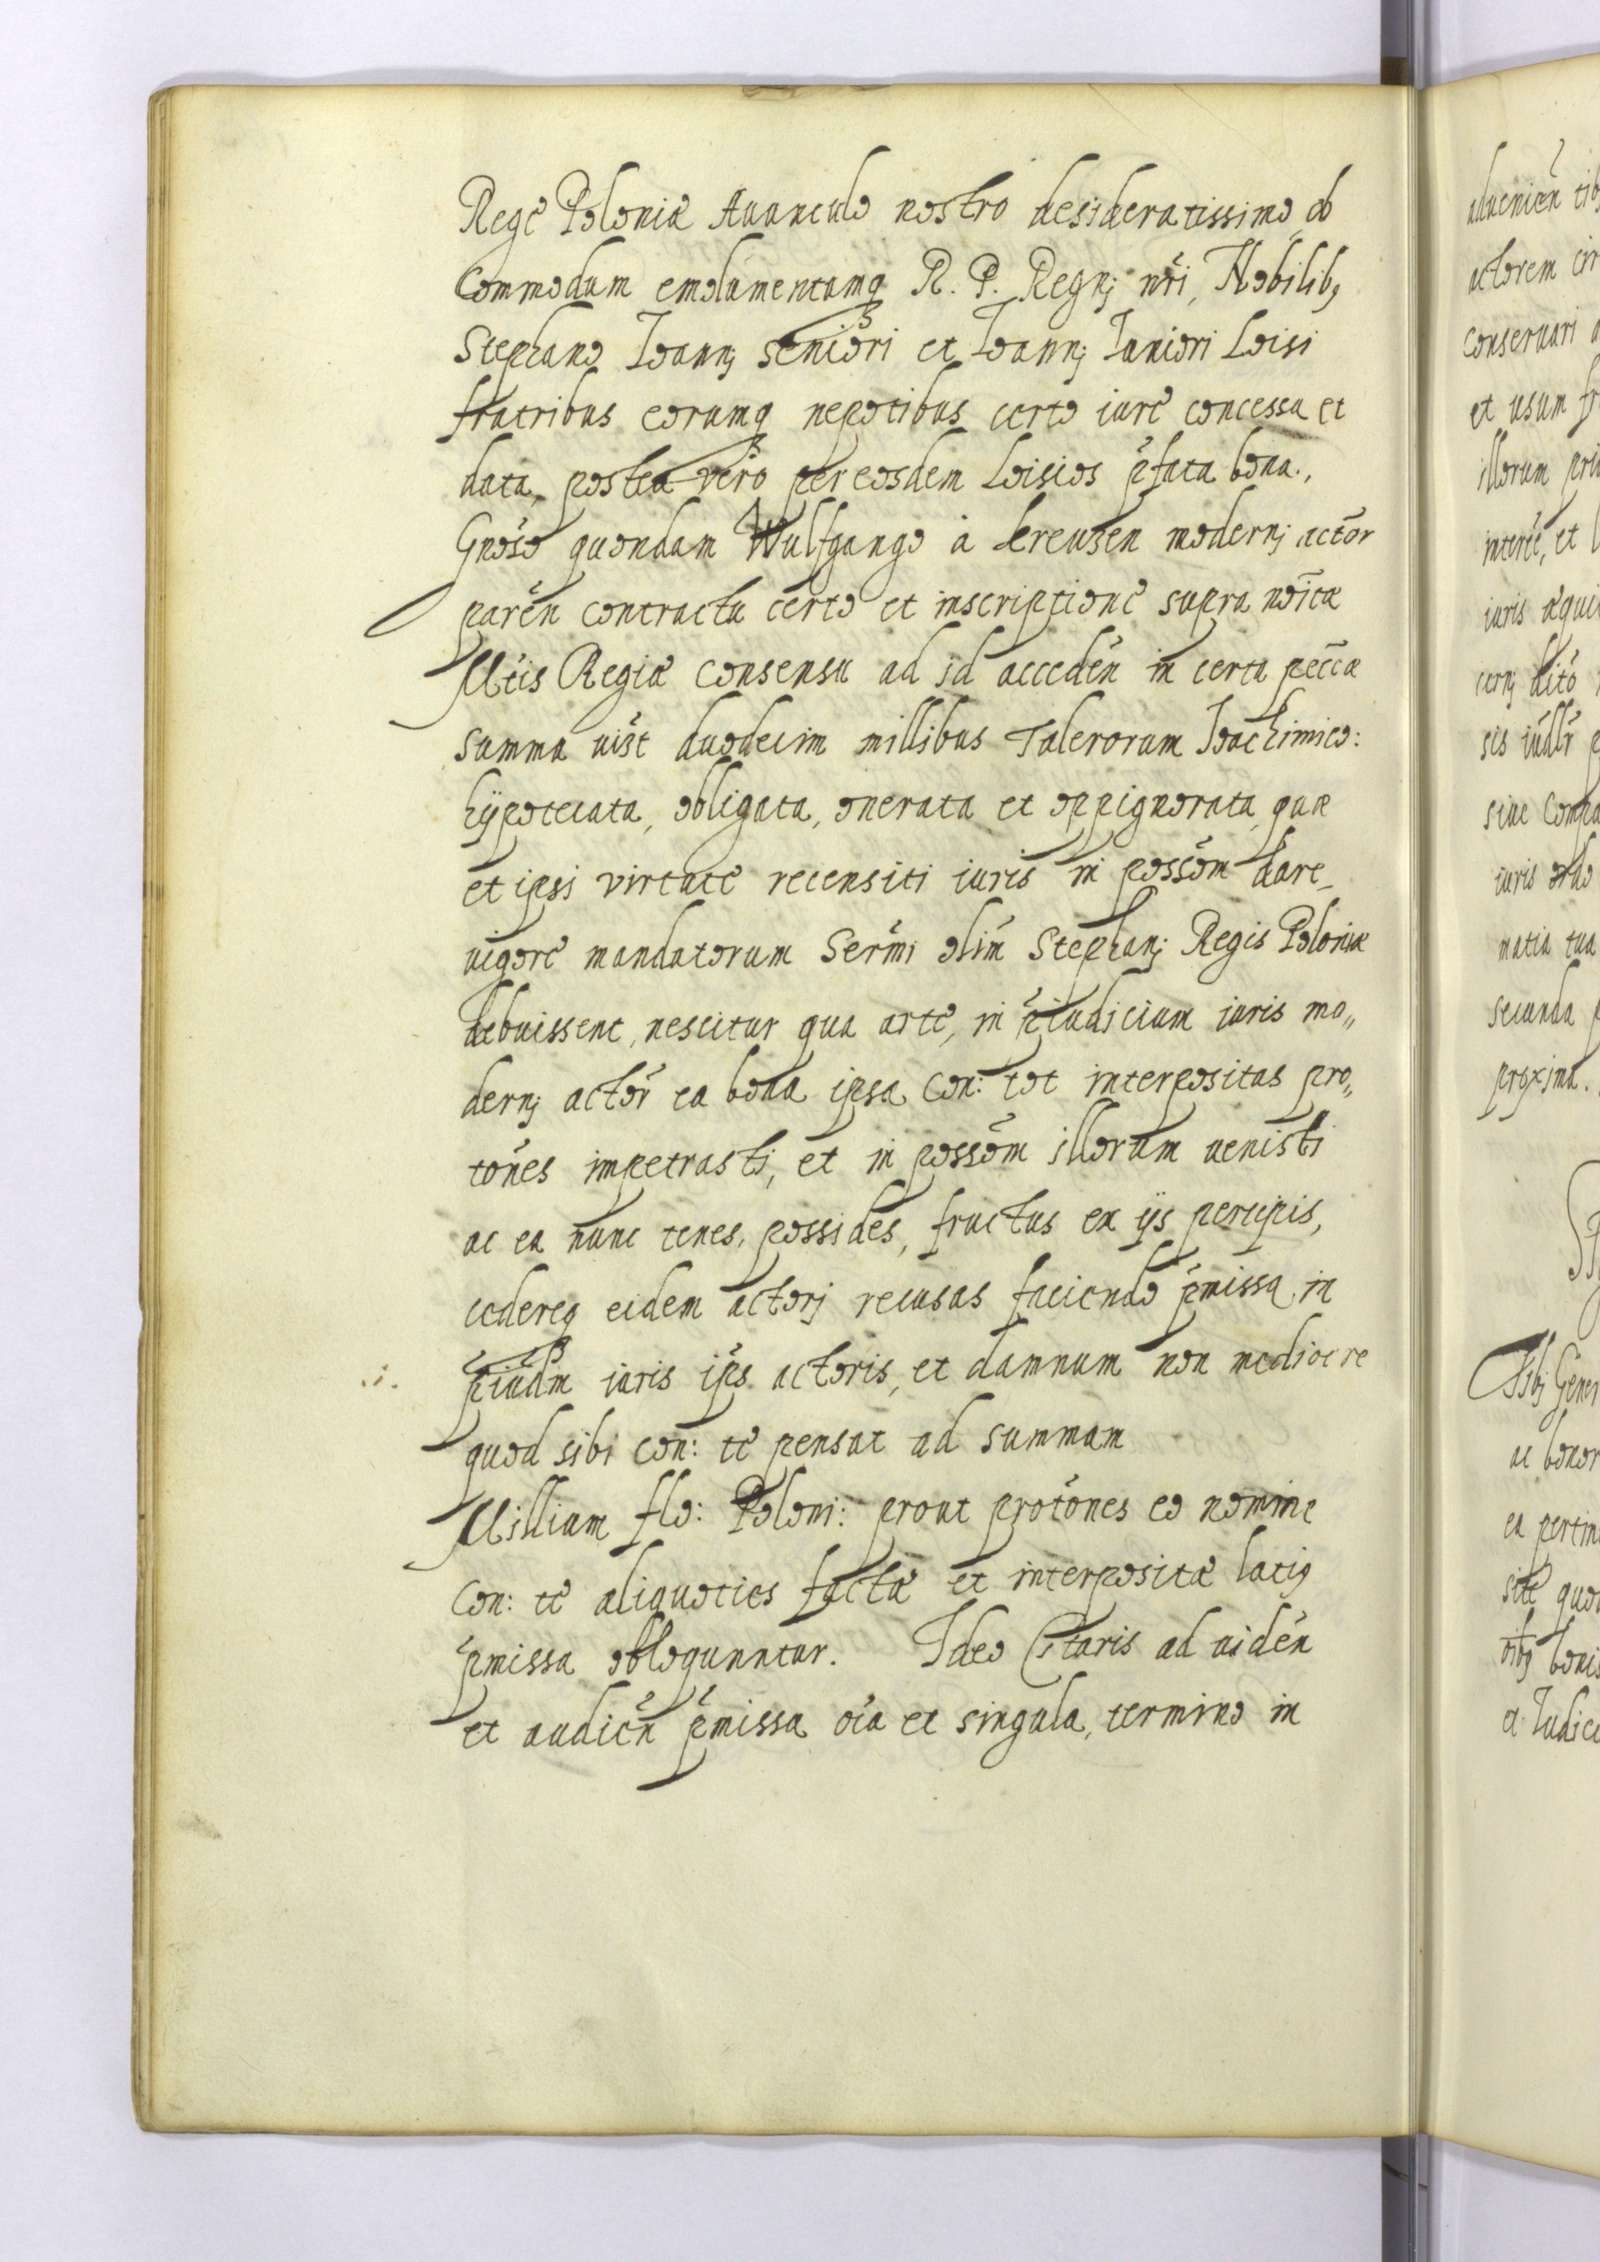 Rege Poloniæ Auunculo nostro desideratissimo, ob
Commodum emolumentumq R. P. Regnj nr̃i, Nobilibq
Stephano Ioannj Seniori et Ioannj Iuniori Loisi
fratribus eorumq nepotibus certo iure concessa et
data, postea vero per eosdem Loisios p̃fata bona.,
Gnõso quondam Wulfgango à Kreuzen modernj actõr
parẽn contractu certo et inscriptione supra nõicæ
Mtis Regiæ consensu ad id accedẽn in certa pecc̃æ
Summa uiz̃t duodecim millibus Talerorum Ioachimico:
hÿpotecata, obligata, onerata et oppignorata, quæ
et ipsi virtute recensiti iuris in possõm dare,
uigore mandatorum Serm̃i olim Stephanj Regis Poloniæ
debuissent, nescitur qua arte, in p̃iudicium iuris mo„
dernj actõr ea bona ipsa Con: tot interpositas pro„
tõnes impetrasti, et in possõm illorum uenisti
ac ea nunc tenes, possides, fructus ex ijs percipis,
cedereq eidem actorj recusas faciendo p̃missa in
p̃iudm̃ iuris ip̃s actoris, et damnum non mediocre
.i.
quod sibi con: te pensat ad summam
Millium flo: Poloni: prout protõnes eo nomine
Con: te aliquoties factæ et interpositæ latiq
p̃missa obloquuntur. Ideo Citaris ad uidẽn
et audiẽn p̃missa oĩa et singula, termino in
aduenien tibq
actorem cir
conseruari a
et usum fr
illorum pri
interee, et l
iuris æqui
cernj dito
sis iudlr p
siue Compa
iuris ordo
matia tua
secunda p
proxima.
Tibj Gener
ac bonor
ea pertine
site quod
oibq bonis
et Iudici